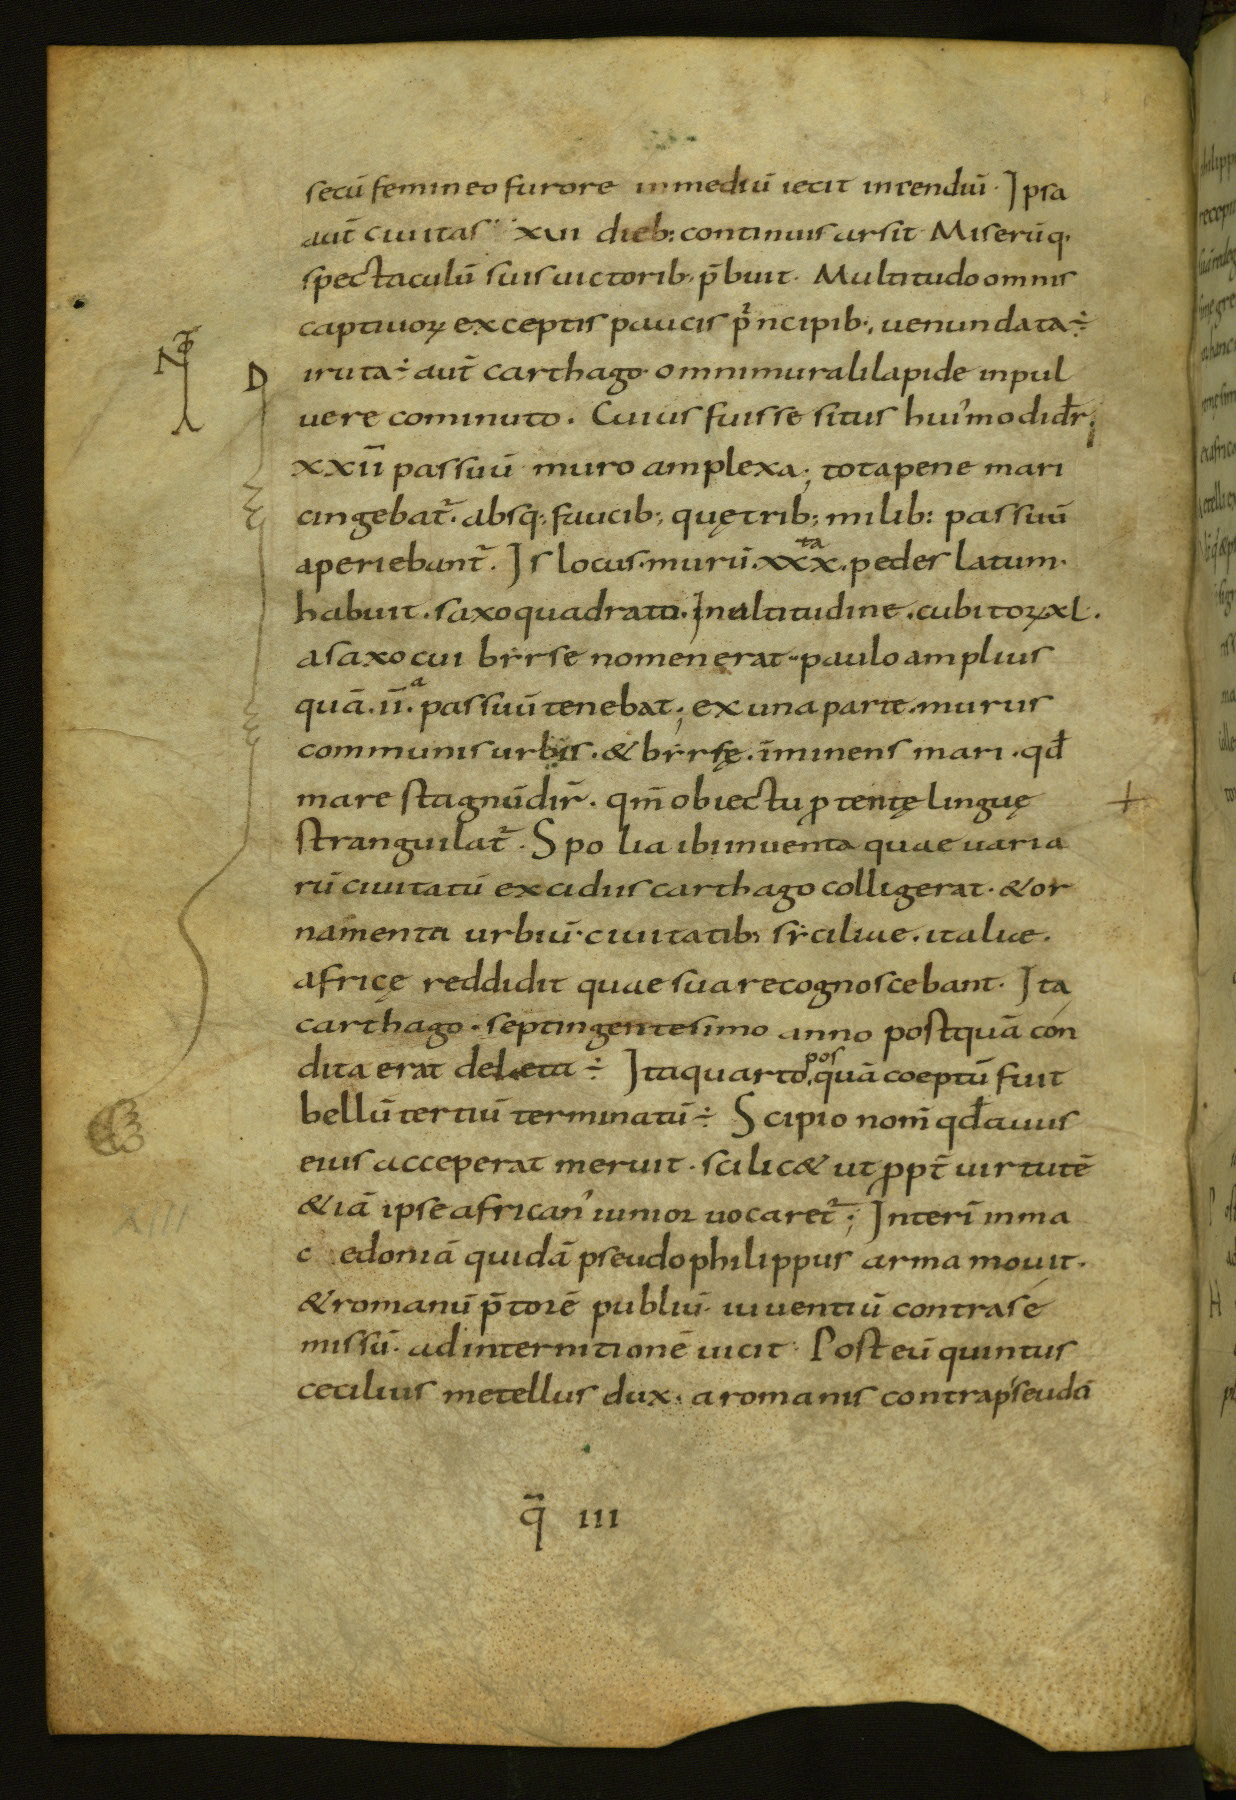 secū femineo furore in mediū iecit incendiū. Ipsa
aut̄ ciuitas xuii dieb: continuis arsit. Miserūq.
spectaculū suis uictorib. p̄buit. Multitudo omnis
captiuoꝝ exceptis paucis pͥncipib., uenundata ÷
D iruta ÷ aut̄ carthago. omni murali lapide in pul
uere cominuto. Cuius fuisse situs hui'modi dr̄;
xxii passuū muro amplexa; tota pene mari
cingebat̄. absq; faucib; quę trib; milib: passuū
aperiebant̄. Is locus. murū. xxx.ta pedes latum.
habuit. saxo quadrato. In altitudine. cubitoꝝ xl.
a saxo cui byrse nomen erat. paulo amplius
quā. ii.a passuū tenebat; ex una parte. murus
communis urbis. & byrsę. īminens mari. qd̄
mare stagnū dir̄. qm̄ obiectu ꝓtentę linguę
stranguilat̄. Spolia ibi inuenta quae uaria
rū ciuitatū excidiis carthago colligerat. & or
namenta urbiū. ciuitatib; syciliae. italiae.
africę reddidit quae sua recognoscebant. Ita
carthago. septingentesimo anno postquā con
dita erat deleta ÷ Ita quarto, pos quā coeptū fuit
bellū tertiū terminatū ÷ Scipio nom̄ qd̄ auus
eius acceperat meruit. scilic& ut ꝓpt̄ uirtutē
& iā ipse african' iunior uocaret̄; Interī in ma
c edoniā quidā pseudophilippus arma mouit.
& romanū p̄torē publiū. iuuentiū contra se
missū. ad internitionē uicit. Post eū quintus
cecilius metellus dux. a romanis contra pseudo
q̄ III
XIII